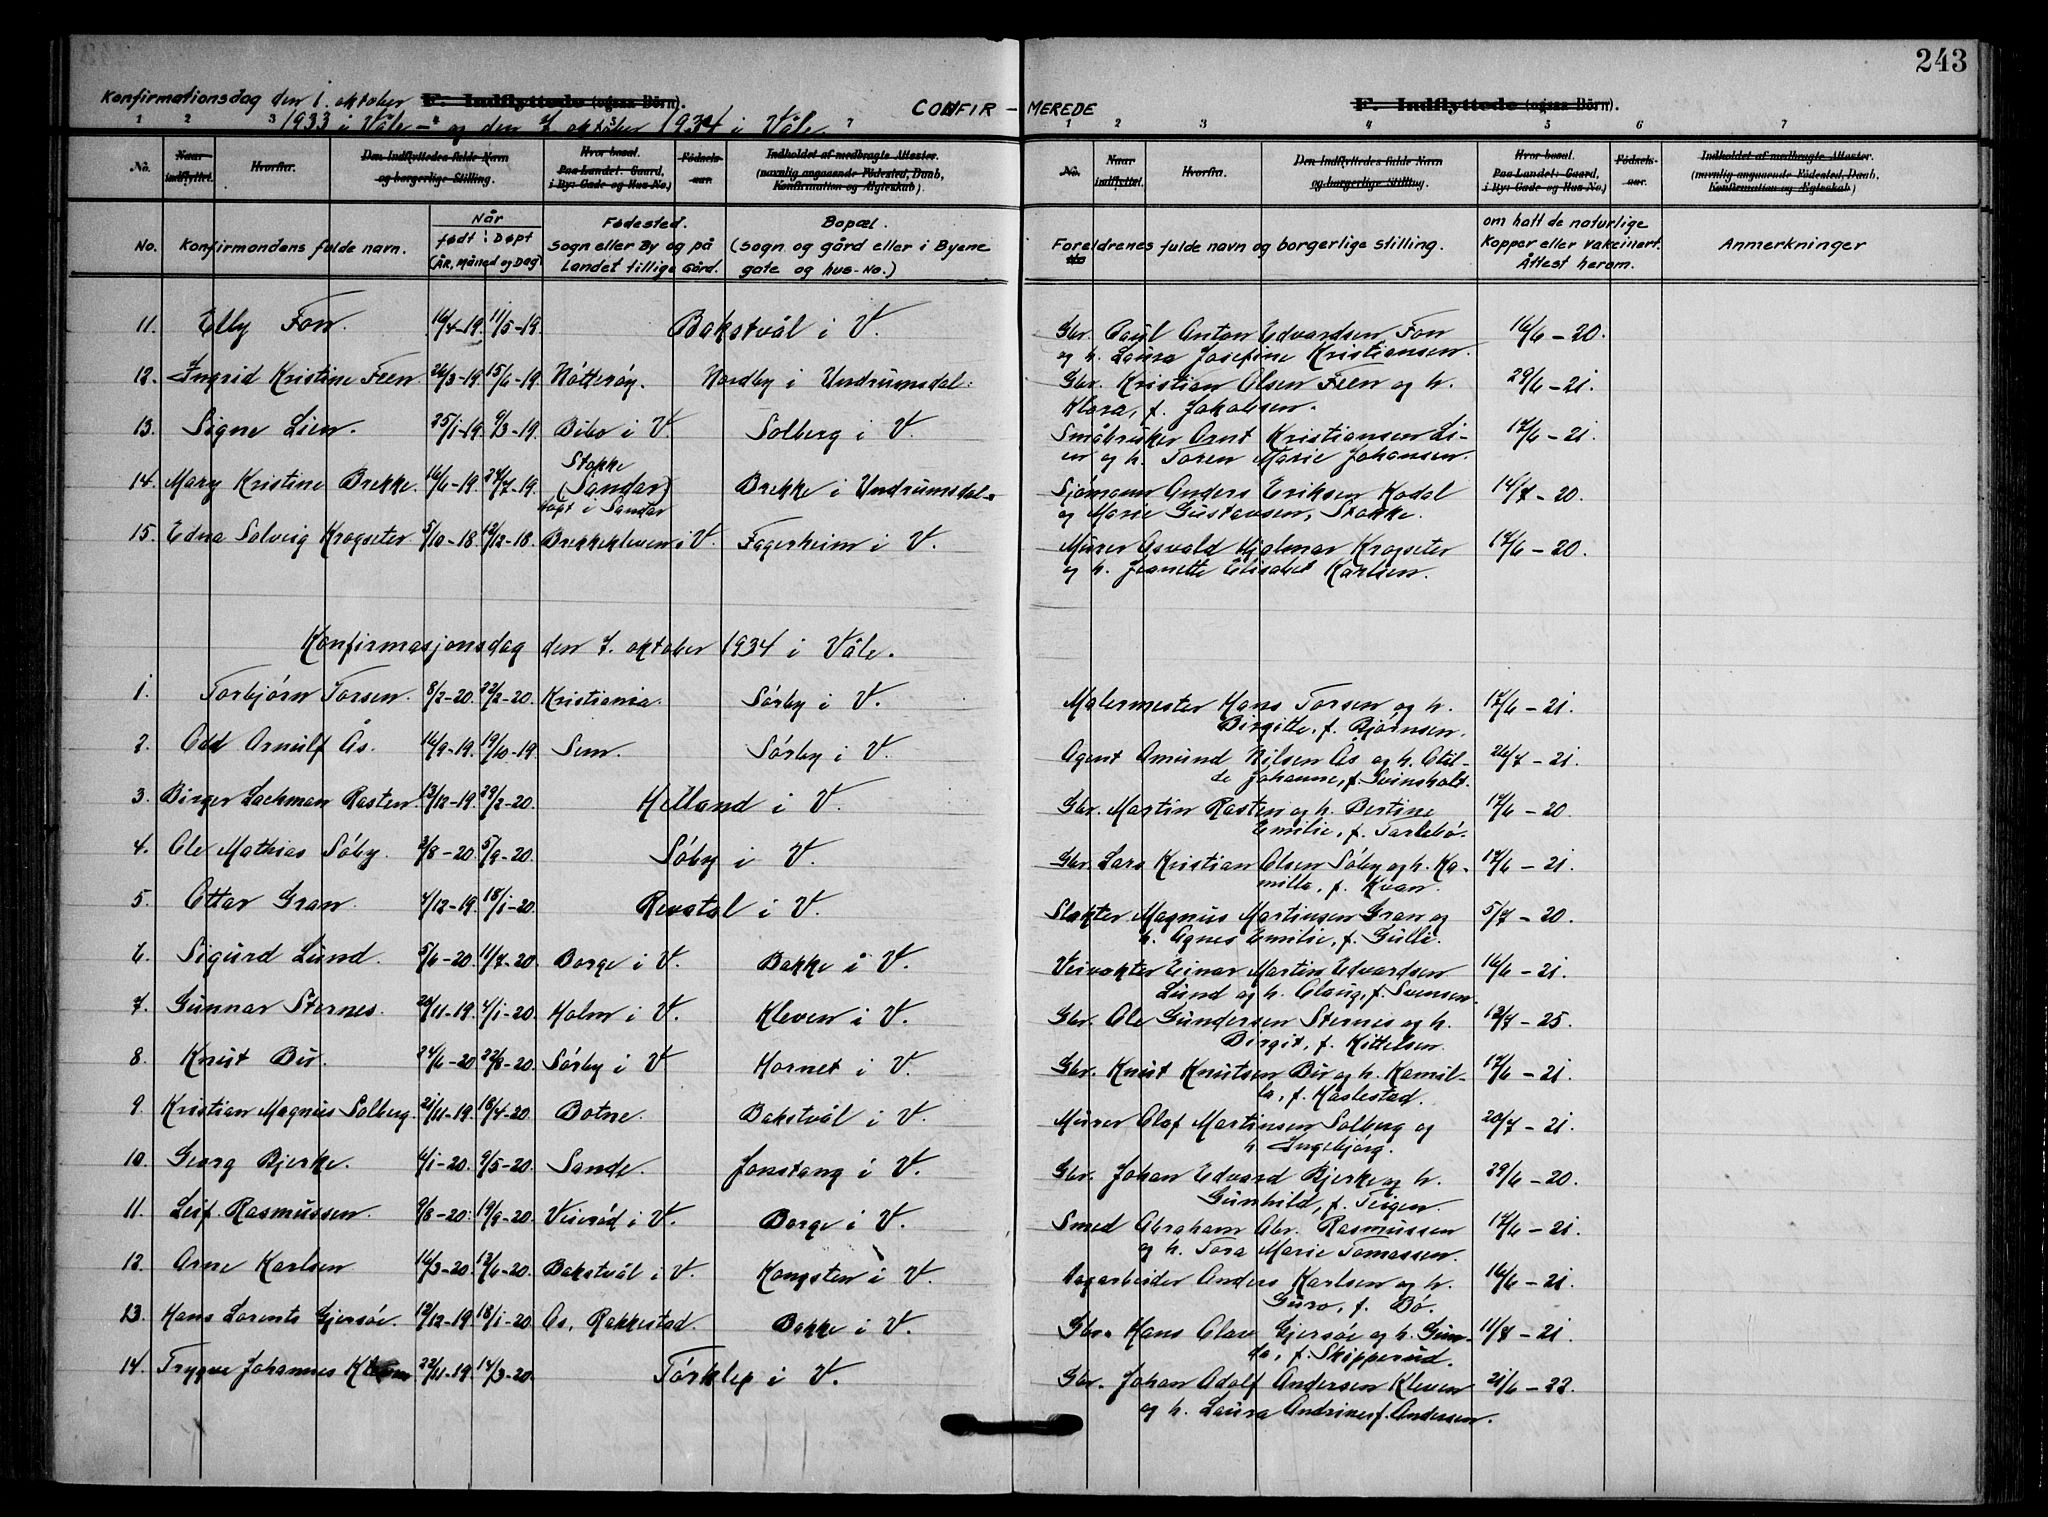 243
Konfirmationsdag den 1. oktober F. Indflyttede (ogsaa Börn).
1933 i Våle - og den 7 oktober 1934 i Våle.
CONFIR - MEREDE
F. Indflyttede (ogsaa Börn).
1 2 3 4 5 7
1 2 3 4 5 6 7
No. Naar indflyttet. Hvorfra. Den Indflyttedes fulde Navn og borgerlige Stilling. Hvor bosat. Paa Landet: Gaard, i By: Gade og Hus-No.) Fødsels-aar. Indholdet af medbragte Attester. (navnlig angaaende Födested, Daab, Konfirmation og Ægteskab)
No. Naar indflyttet. Hvorfra. Den Indflyttedes fulde Navn og borgerlige Stilling. Hvor bosat. Paa Landet: Gaard, i By: Gade og Hus-No.) Fødsels-aar. Indholdet af medbragte Attester. (navnlig angaaende Födested, Daab, Konfirmation og Ægteskab)
No. Konfirmandens fulde navn. Når født: Døpt (År, måned og Dag) Fødested. Sogn eller By og på Landet tillige Gård. Bopæl. (sogn og gård eller i Byene gate og hus-No.)
Foreldrenes fulde navn og borgerlige stilling. om hatt de naturlige Kopper eller vakcinert. Attest herom. Anmerkninger
11. Elly Fon. 16/4-19. 11/5-19. Bakstvål i V. Gbr. Paul Anton Edvardsen Fon 16/6 - 20.
og h. Laura Josefine Kristiansen.
12. Ingrid Kristine Feen 26/3-19. 15/6-19. Nøtterøy. Nordby i Undrumsdal. Gbr. Kristian Olsen Feen og h. 29/6 - 21.
Klara, f. Jakobsen.
13. Signe Lien. 25/1-19. 9/3-19. Bibo i V. Solberg i V. Småbruker Arnt Kristiansen Li- 17/6 - 21.
en og h. Toren Marie Johansen.
14. Mary Kristine Brekke. 16/6-19. 27/7-19. Stokke (Sandar) døpt i Sandar Brekke i Undrumsdal. Sjømann Anders Eriksen Kodal 14/7 - 20.
og Marie Gustavsen, Stokke.
15. Edna Solveig Krogseter 5/10-18. 12/12-18. Brekkekleven i V. Fagerheim i V. Murer Osvald Hjalmar Krogseter 17/6 - 20.
og h. Jeanette Elisabet Karlsen.
Konfirmasjonsdag den 7. oktober 1934 i Våle.
1. Torbjørn Torsen. 8/2-20. 22/2-20. Kristiania. Sørby i V. Malermester Hans Torsen og h. 17/6 - 21.
Birgitte, f. Bjørnsen.
2. Odd Arnulf Ås. 16/9-19. 19/10-19. Sem. Sørby i V. Agent Amund Nilsen Ås og h. Otil- 26/7 - 21.
de Johanne, f. Svinsholt.
3. Birger Lachman Rasten. 13/12-19. 29/2-20. Helland i V. Gbr. Martin Rasten og h. Bertine 17/6 - 20.
Emilie, f. Tarlebø.
4. Ole Mathias Søby. 3/8-20. 5/9-20. Søby i V. Gbr. Lars Kristian Olsen Søby og h. Ka- 17/6 - 21.
milla, f. Kvan.
5. Ottar Gran. 4/12-19. 18/1-20. Revetal i V. Slakter Magnus Martinsen Gran og 5/7 - 20.
h. Agnes Emilie, f. Gulli.
6. Sigurd Lund. 5/6-20. 11/7-20. Borge i V. Bakke i V. Veivokter Einar Martin Edvardsen 16/6 - 21.
Lund og h. Olaug, f. Svensen.
7. Gunnar Sternes. 20/11-19. 4/1-20. Holm i V. Kleven i V. Gbr. Ole Gundersen Sternes og h. 13/7 - 25.
Birgit, f. Kittelsen.
8. Knut Bu. 24/6-20. 22/8-20. Sørby i V Hornet i V. Gbr. Knut Knutsen Bu og h. Kamil- 17/6 - 21.
la, f. Haslestad.
9. Kristian Magnus Solberg. 21/11-19. 18/4-20. Botne. Bakstvål i V. Murer Olaf Martinsen Solberg og 20/7 - 21.
h Ingebjørg.
10. Georg Bjerke. 4/1-20. 9/5-20. Sande. Jonstang i V. Gbr. Johan Edvard Bjerke og h. 29/6 - 20.
Gunhild, f. Teigen.
11. Leif Rasmussen. 9/8-20. 19/9-20. Veierød i V. Borge i V. Smed Abraham Abr. Rasmussen 17/6 - 21.
og h. Tora Marie Tomassen.
12. Arne Karlsen 16/3-20. 13/6-20. Bakstvål i V. Kongsten i V. Dagarbeider Anders Karlsen og h. 16/6 - 21.
Guro, f. Bø.
13. Hans Lorents Gjersøe. 12/12-19. 18/1-20. Os, Rakkestad. Bakke i V. Gbr. Hans Olav Gjersøe og h. Gun- 11/7 - 21.
da, f. Skipperud.
14. Trygve Johannes Kleven 22/11-19. 14/3-20. Tørklep i V. Gbr. Johan Adolf Andersen Kleven 21/6 - 22.
og h. Laura Andrine, f. Andersen.